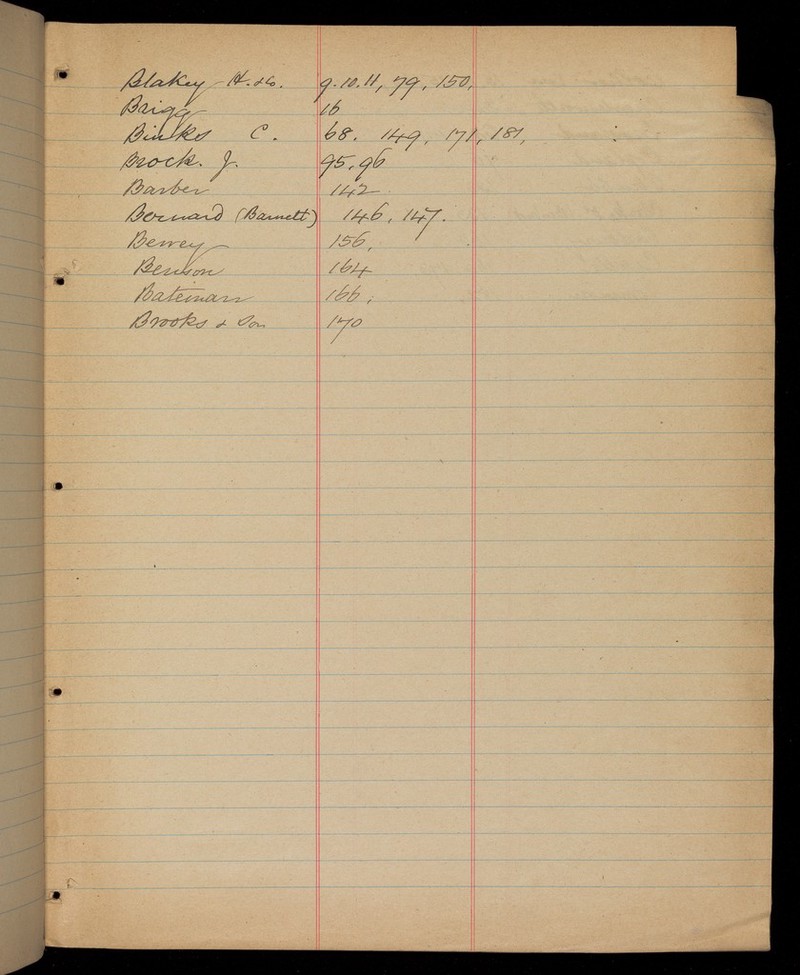 Blakey H. & Co. 9.10.11, 79, 150,
Brigg 16
Binks C. 68. 149, 171, 181,
Brock. J. 95, 96
Barber 142
Bernard (Barnett) 146, 147.
Bewey 156,
Benson 164
Bateman 166,
Brooks & Son 170